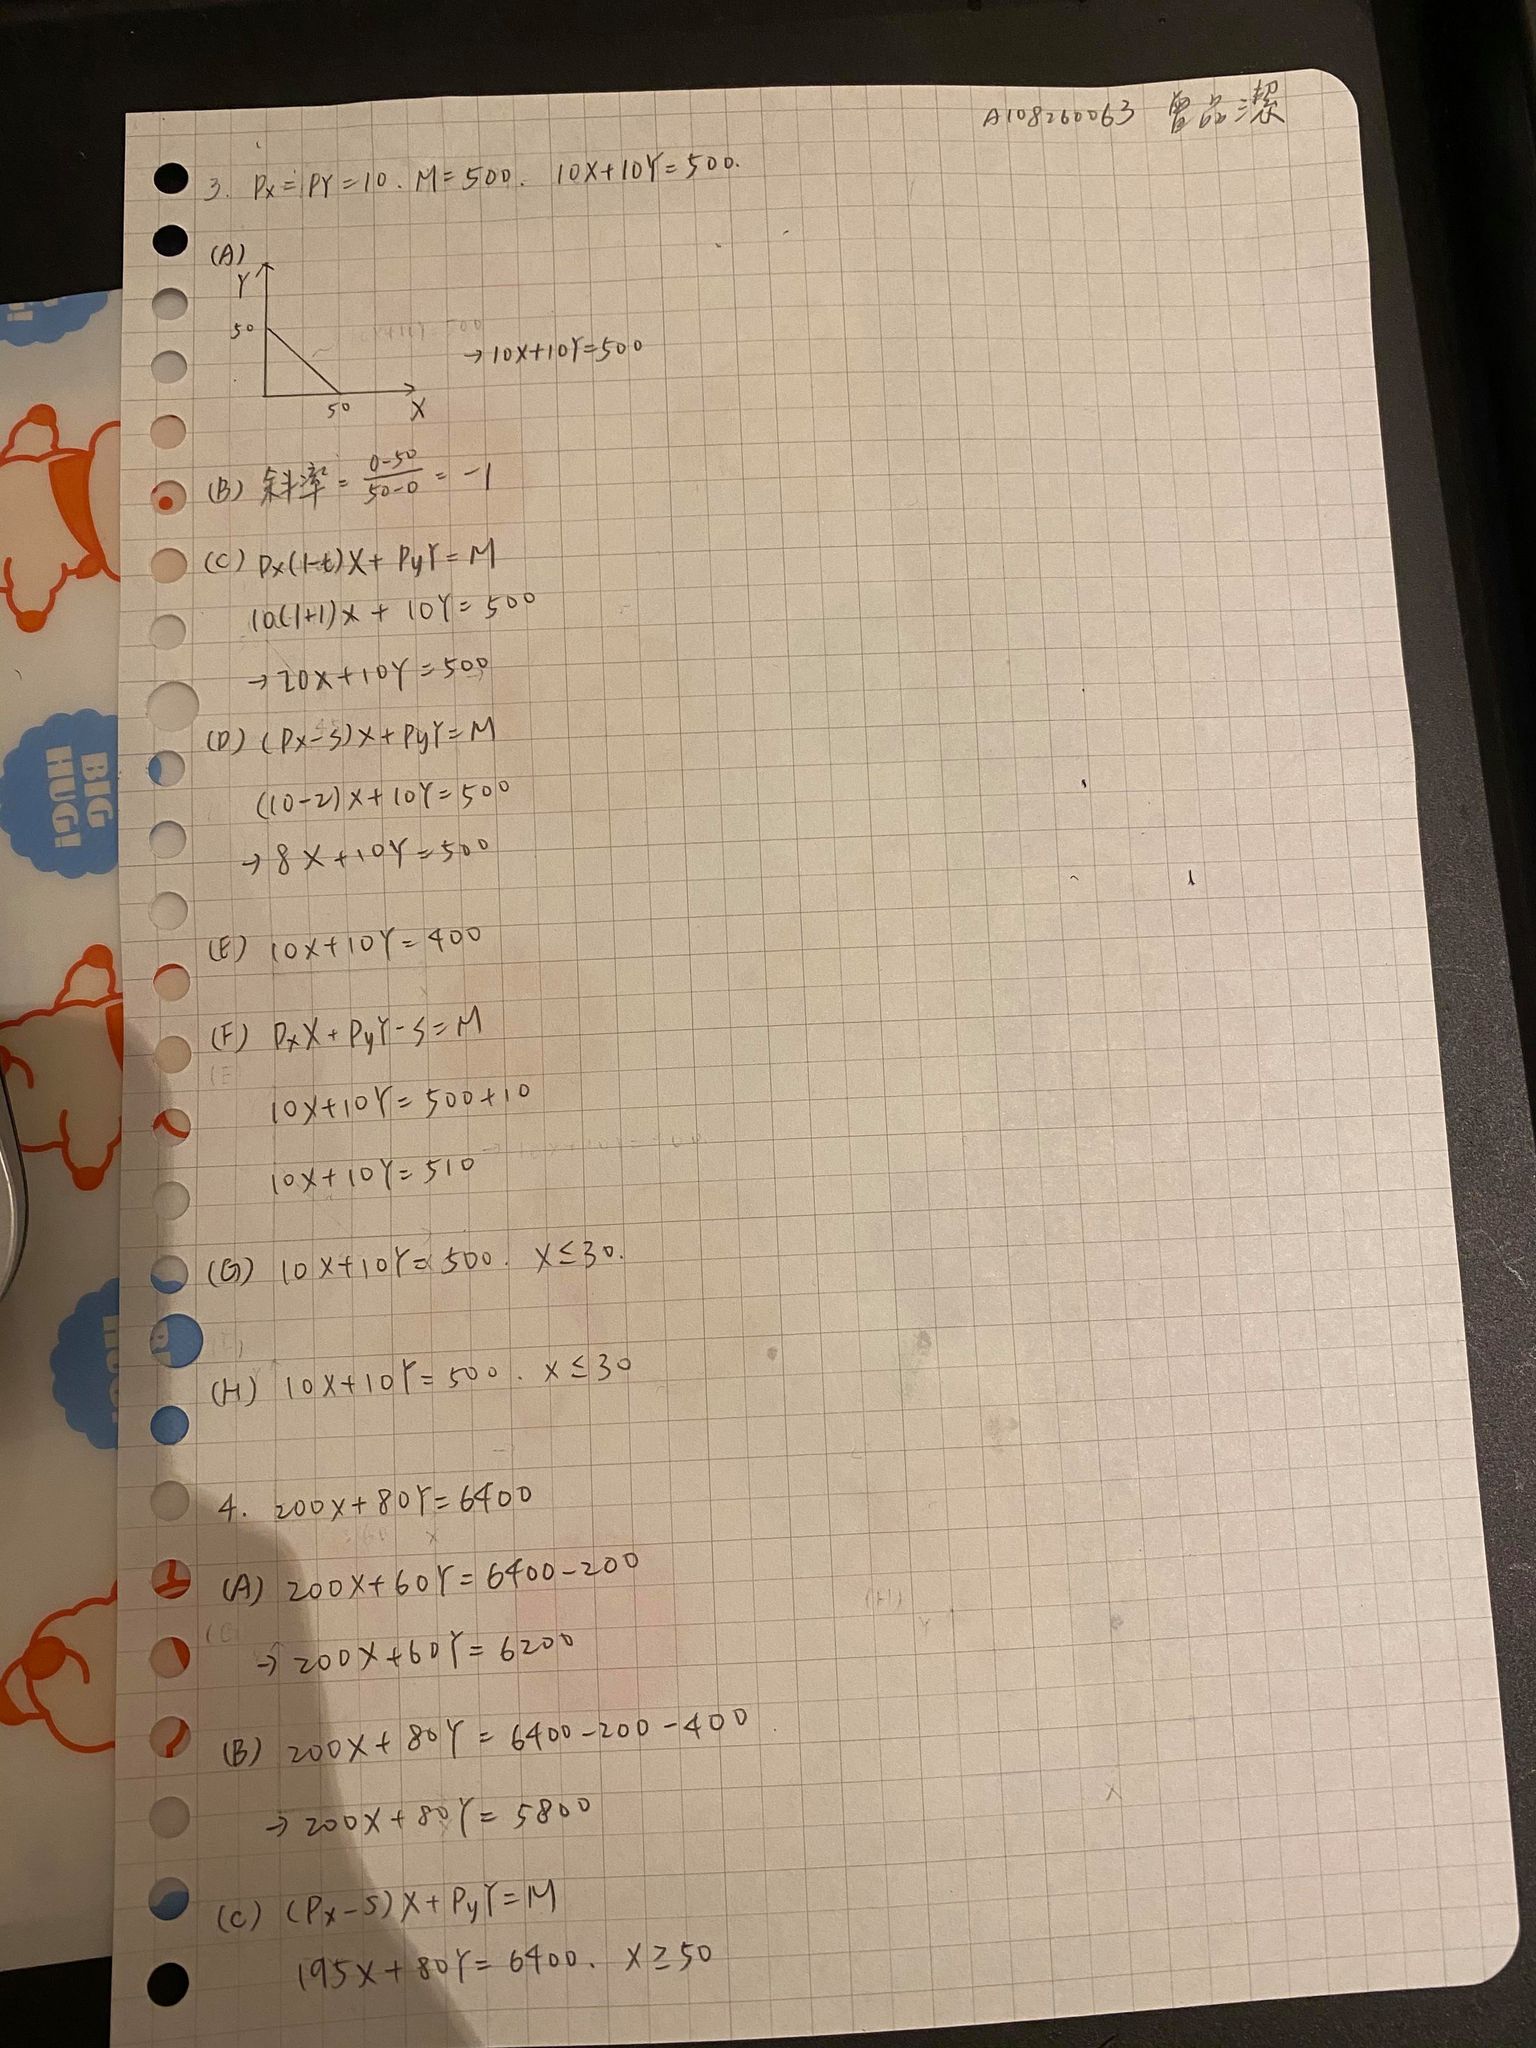 A108260063 曾品潔
3. Px = PY = 10. M = 500. 10X+10Y=500.
(A)
Y
50
→ 10X+10Y=500
50
X
(B) 斜率 = \frac{0-50}{50-0} = -1
(C) Px(1-t)X + PyY = M
10(1+1)X + 10Y = 500
→ 20X+10Y = 500
(D) (Px-S)X + PyY = M
(10-2)X+10Y = 500
→ 8X+10Y = 500
(E) 10X+10Y = 400
(F) PxX + PyY - S = M
10X+10Y = 500+10
10X+10Y = 510
(G) 10X+10Y = 500. X ≤ 30.
(H) 10X+10Y = 500. X ≤ 30
4. 200X+80Y = 6400
(A) 200X+60Y = 6400-200
→ 200X+60Y = 6200
(B) 200X+80Y = 6400-200-400
→ 200X+80Y = 5800
(C) (Px-S)X + PyY = M
195X+80Y = 6400. X ≥ 50
BIG
HUG!